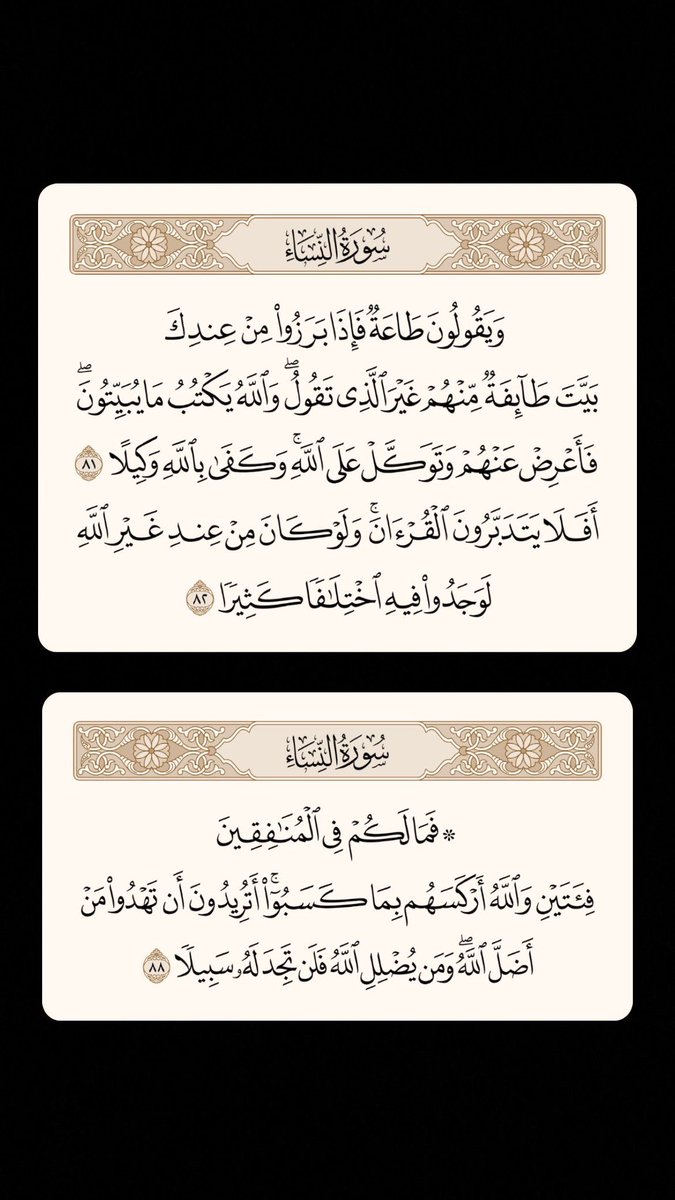 سُورَةُ النِّسَاءِ
وَيَقُولُونَ طَاعَةٌ فَإِذَا بَرَزُوا۟ مِنْ عِندِكَ
بَيَّتَ طَآئِفَةٌ مِّنْهُمْ غَيْرَ ٱلَّذِى تَقُولُ ۖ وَٱللَّهُ يَكْتُبُ مَا يُبَيِّتُونَ ۖ
فَأَعْرِضْ عَنْهُمْ وَتَوَكَّلْ عَلَى ٱللَّهِ ۚ وَكَفَىٰ بِٱللَّهِ وَكِيلًا ٨١
أَفَلَا يَتَدَبَّرُونَ ٱلْقُرْءَانَ ۚ وَلَوْ كَانَ مِنْ عِندِ غَيْرِ ٱللَّهِ
لَوَجَدُوا۟ فِيهِ ٱخْتِلَـٰفًا كَثِيرًا ٨٢
سُورَةُ النِّسَاءِ
* فَمَا لَكُمْ فِى ٱلْمُنَـٰفِقِينَ
فِئَتَيْنِ وَٱللَّهُ أَرْكَسَهُم بِمَا كَسَبُوٓا۟ ۚ أَتُرِيدُونَ أَن تَهْدُوا۟ مَنْ
أَضَلَّ ٱللَّهُ ۖ وَمَن يُضْلِلِ ٱللَّهُ فَلَن تَجِدَ لَهُۥ سَبِيلًا ٨٨